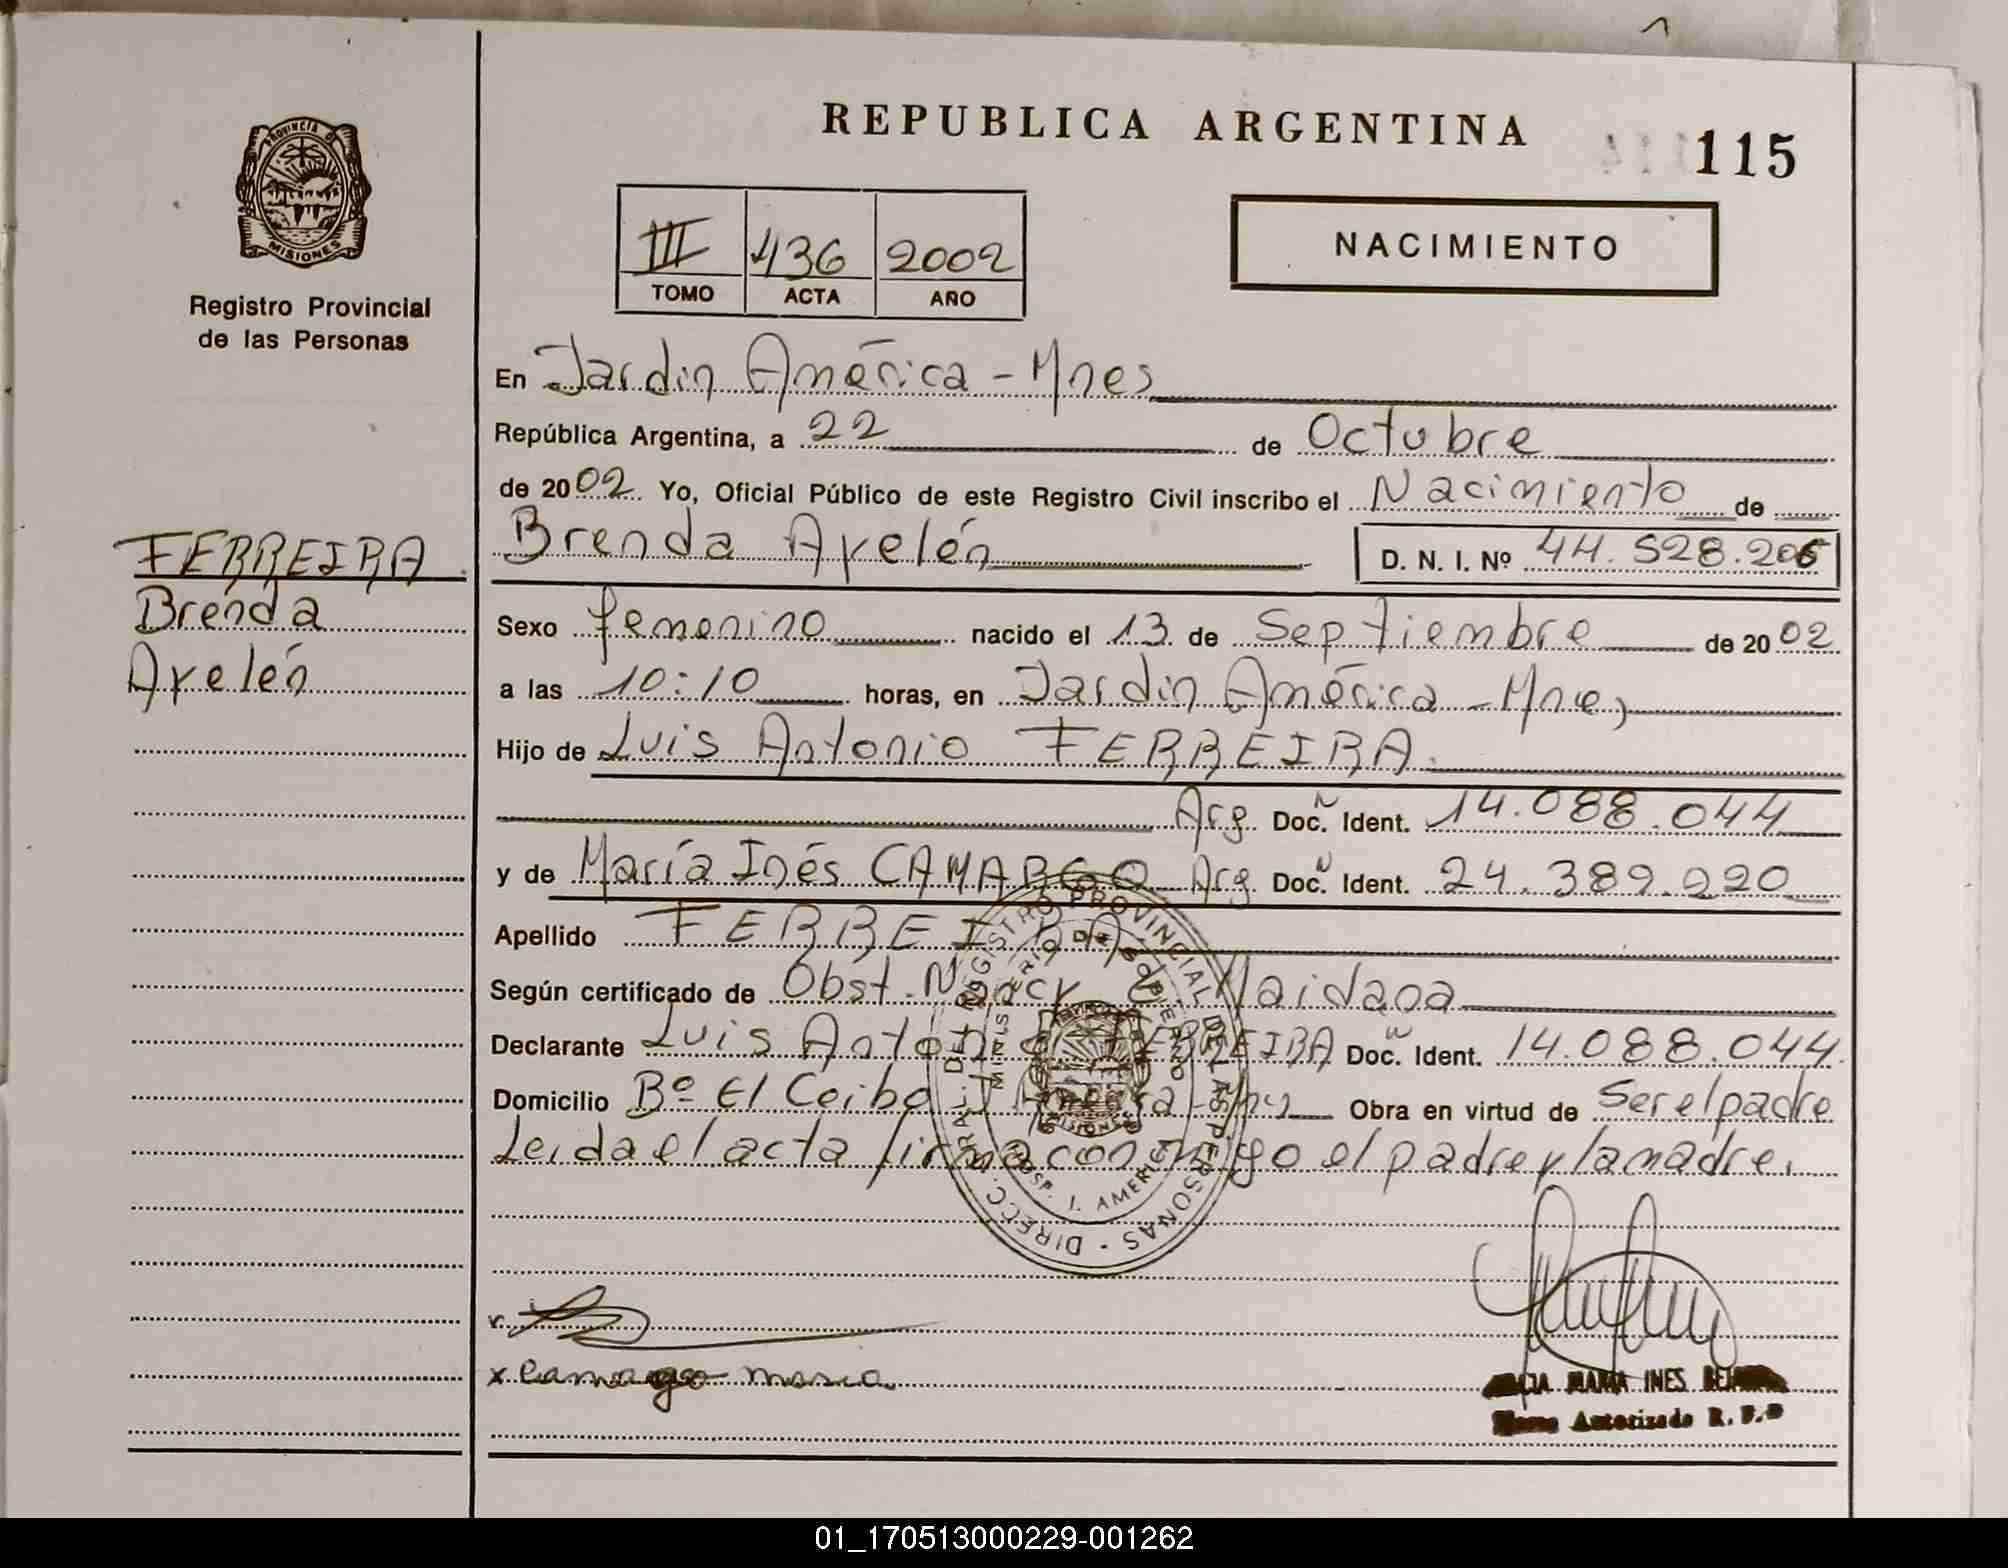 REPUBLICA ARGENTINA
115
PROVINCIA DE
MISIONES
Registro Provincial
de las Personas
III 436 2002
TOMO ACTA AÑO
NACIMIENTO
En Jardin América - Mnes
República Argentina, a 22 de Octubre
de 2002 Yo, Oficial Público de este Registro Civil inscribo el Nacimiento de
Brenda Ayelén D. N. I. Nº 44.528.206
FERREIRA
Brenda
Ayelén
Sexo femenino nacido el 13 de Septiembre de 2002
a las 10:10 horas, en Jardin América - Mnes
Hijo de Luis Antonio FERREIRA.
Arg. Doc. Ident. 14.088.044
y de María Inés CAMARGO Arg. Doc. Ident. 24.389.220
Apellido FERREIRA
Según certificado de Obst. Nancy Maidana
Declarante Luis Antonio FERREIRA Doc. Ident. 14.088.044
Domicilio Bº El Ceibo J. América - Obra en virtud de Ser el padre
Leida el acta firma conmigo el padre y la madre.
DIRECC. GRAL. DEL REGISTRO PROVINCIAL DE LAS PERSONAS
MINISTERIO DE GOBIERNO
HOSP. J. AMERICA
MISIONES
x Camargo Maria
MARIA INES
Autorizada R. P.
01_170513000229-001262